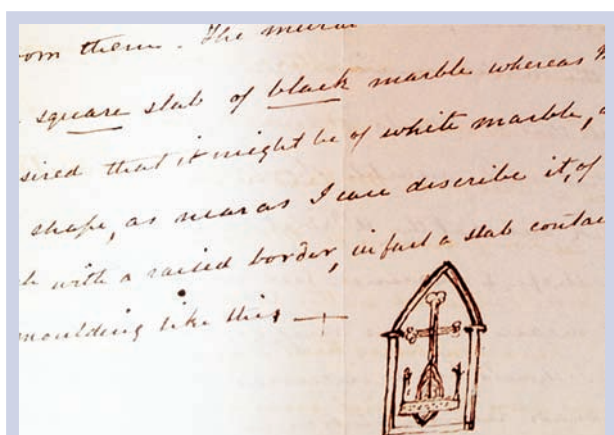 om them. The mura
square slab of black marble whereas
sired that it might be of white marble,
shape, as near as I can describe it, of
with a raised border, in fact a slab contai
moulding like this